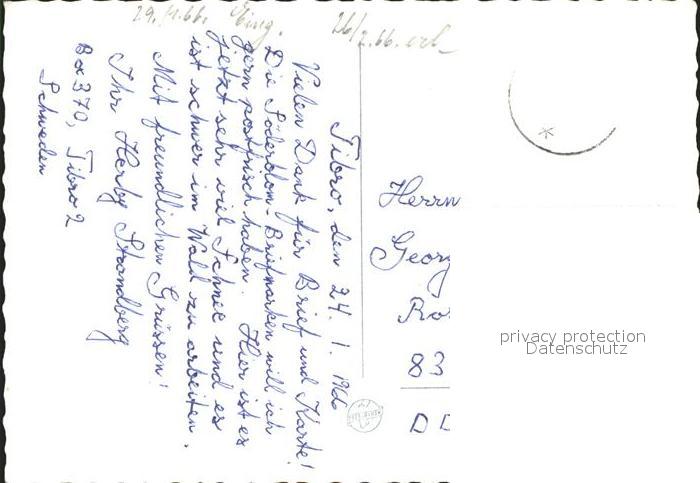 29. 1. 66. Eing.
26/2.66.
Tibro, den 24. 1. 1966
Vielen Dank für Brief und Karte!
Die Söderblom-Briefmarken will ich
gern postfrisch haben. Hier ist es
jetzt sehr viel Schnee und es
ist schwer im Wald zu arbeiten.
Mit freundlichen Grüssen!
Ihr Herby Strandberg
Box 370, Tibro 2
Schweden
Herrn
Georg
Ro
83
DD
privacy protection
Datenschutz